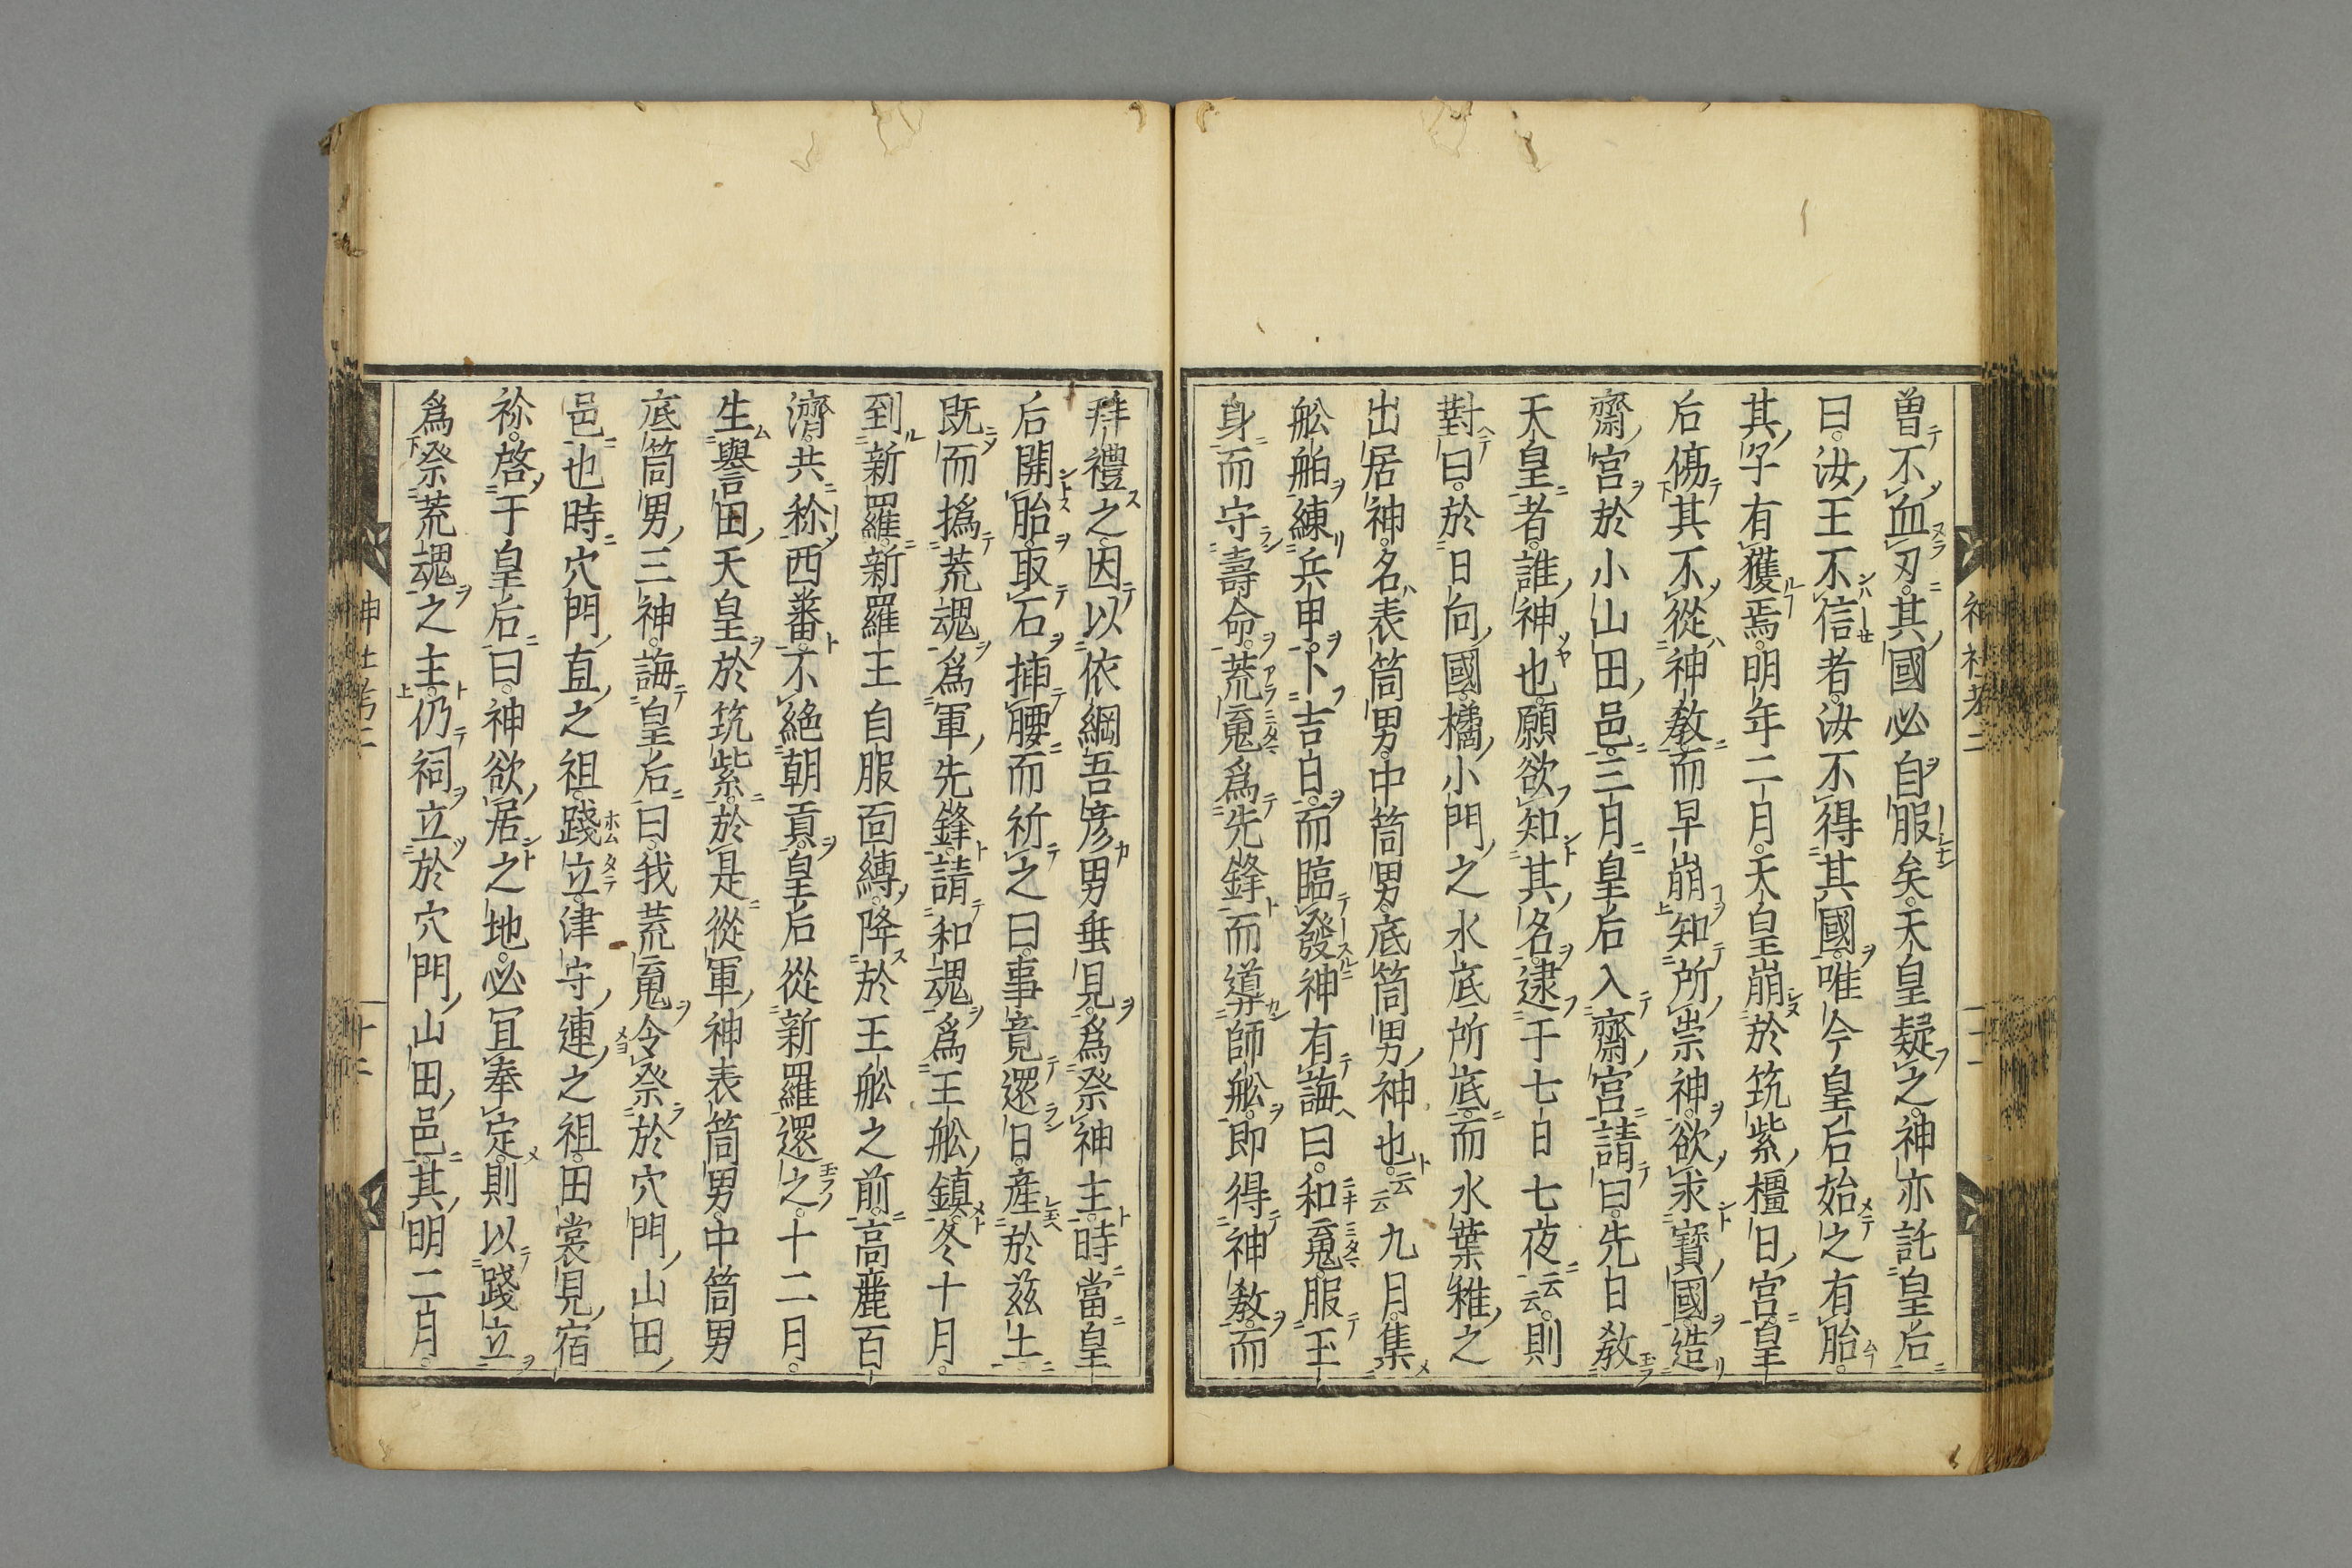 曽不血刃其國必自服矣天皇疑之神亦託皇后
曰汝王不信者汝不得其國唯今皇后始之有胎
其子有獲焉明年二月天皇崩於筑紫橿日宮皇
后傷其不從神教而早崩知所祟神欲求寶國造
齋宮於小山田邑三月皇后入齋宮請曰先日教
天皇者誰神也願欲知其名逮于七日七夜云云則
對曰於日向國橘小門之水底所底而水葉稚之
出居神名表筒男中筒男底筒男神也云云九月集
舩舶練兵甲卜吉日而臨發神有誨曰和䰟服玉
身而守壽命荒䰟爲先鋒而導師舩即得神教而
拜禮之因以依綱吾彦男垂見爲祭神主時當皇
后開胎取石挿腰而祈之曰事竟還日産於茲土
既而撝荒魂爲軍先鋒請和魂爲王舩鎮冬十月
到新羅新羅王自服面縛降於王舩之前高麗百
濟共称西蕃不絶朝貢皇后從新羅還之十二月
生譽田天皇於筑紫於是從軍神表筒男中筒男
底筒男三神誨皇后曰我荒䰟令祭於穴門山田
邑也時穴門直之祖踐立津守連之祖田裳見宿
祢啓于皇后曰神欲居之地必冝奉定則以踐立
爲祭荒魂之主仍祠立於穴門山田邑其明二月
神社考二
十一
十二